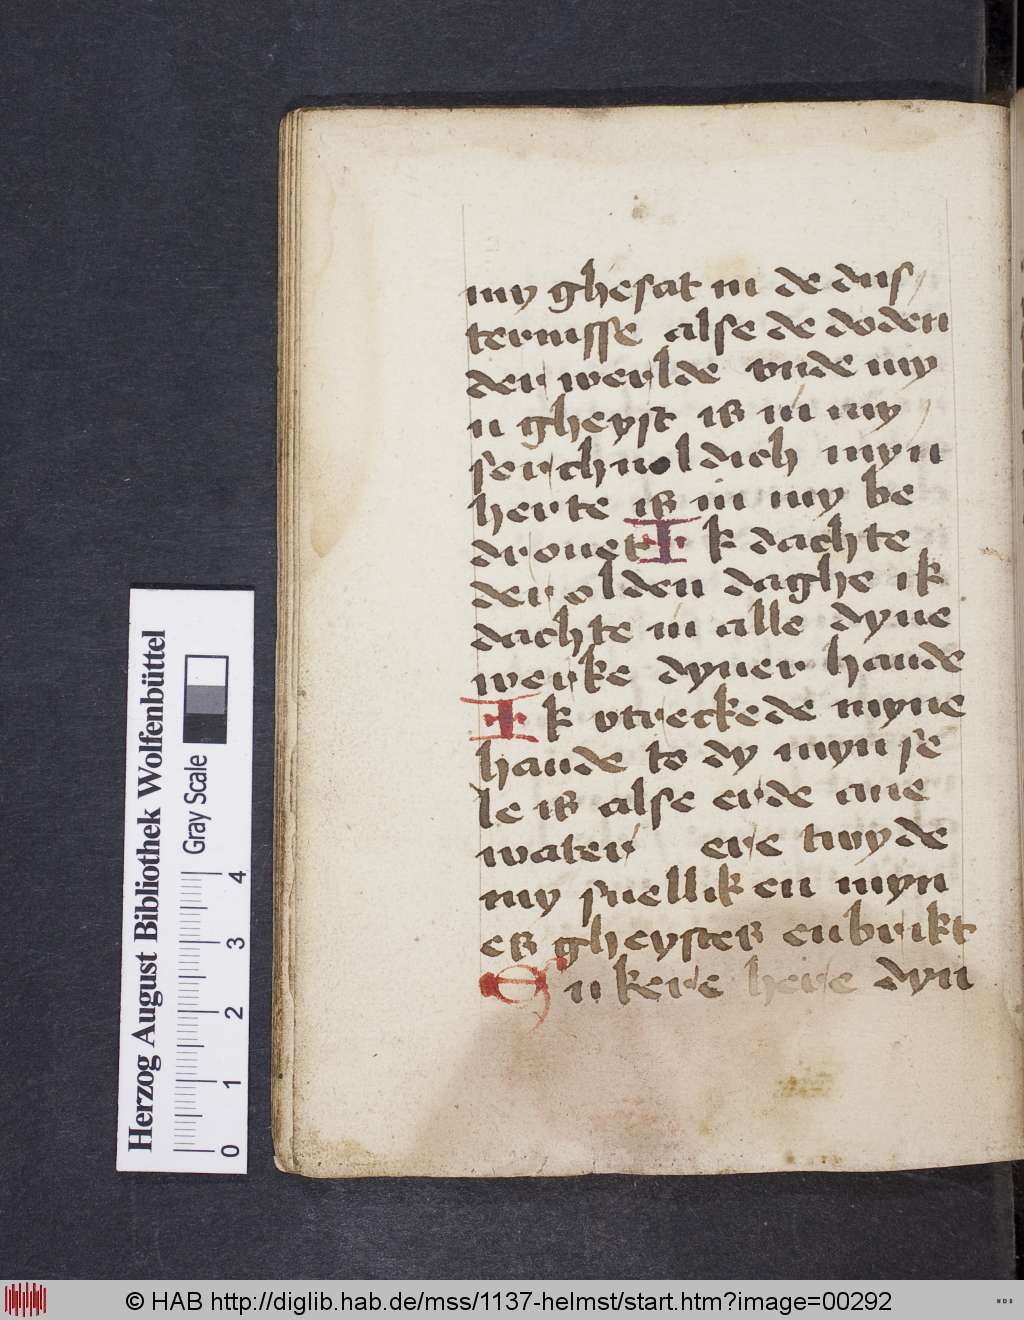 my ghesat in de dus
ternisse alse de doden
der werlde vnde my
n gheyst is in my
serchuoldich myn
herte is in my be
drouet Ik dachte
der olden daghe ik
dachte in alle dyne
werke dyner hande
Ik vtreckede myne
hande to dy myn se
le is alse erde ane
water ere twyde
my snelliken myn
es gheystes enbrikt
On kere here dyn
Herzog August Bibliothek Wolfenbüttel
Gray Scale
0 1 2 3 4
© HAB http://diglib.hab.de/mss/1137-helmst/start.htm?image=00292